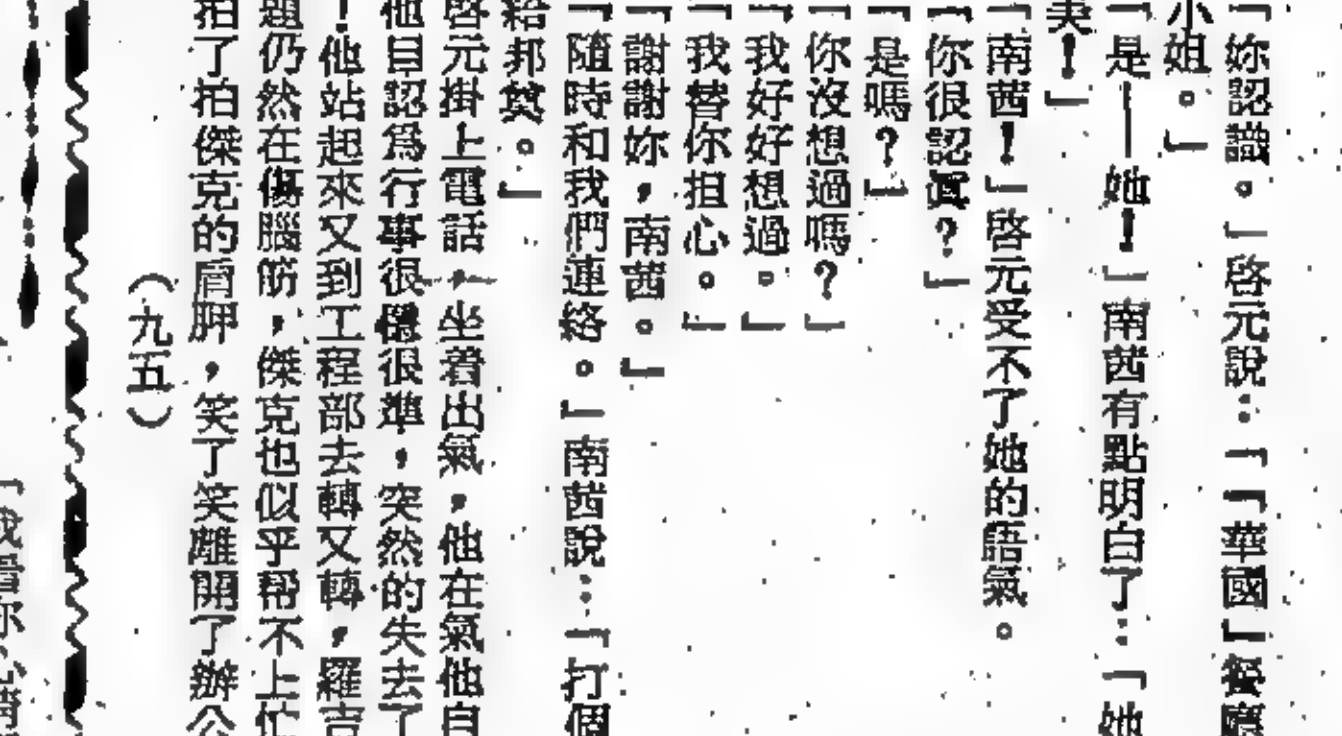 「妳認識。」啓元說：「「華國」餐廳
小姐。」
「是——她！」南茜有點明白了：「她
美！」
「南茜！」啓元受不了她的語氣。
「你很認眞？」
「是嗎？」
「你沒想過嗎？」
「我好好想過。」
「我替你担心。」
「謝謝妳，南茜。」
「隨時和我們連絡。」南茜說：「打個
給邦奠。」
啓元掛上電話，坐着出氣，他在氣他自
他自認爲行事很穩很準，突然的失去了
！他站起來又到工程部去轉又轉，羅吉
題仍然在傷腦筋，傑克也似乎帮不上忙
拍了拍傑克的肩胛，笑了笑離開了辦公
（九五）
「我看你心情